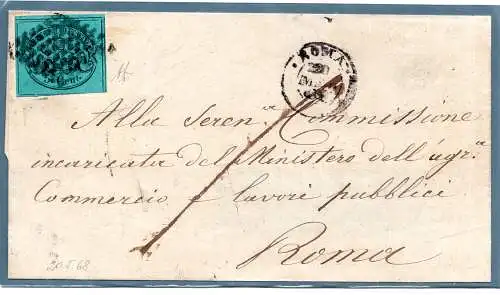 5 Cent.
ROMA
Alla Seren.ma Commissione
incaricata del Ministero dell'agr.a
Commercio e lavori pubblici
Roma
20.5.68